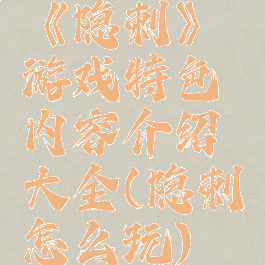 《隐刺》
游戏特色
内容介绍
大全(隐刺
怎么玩)